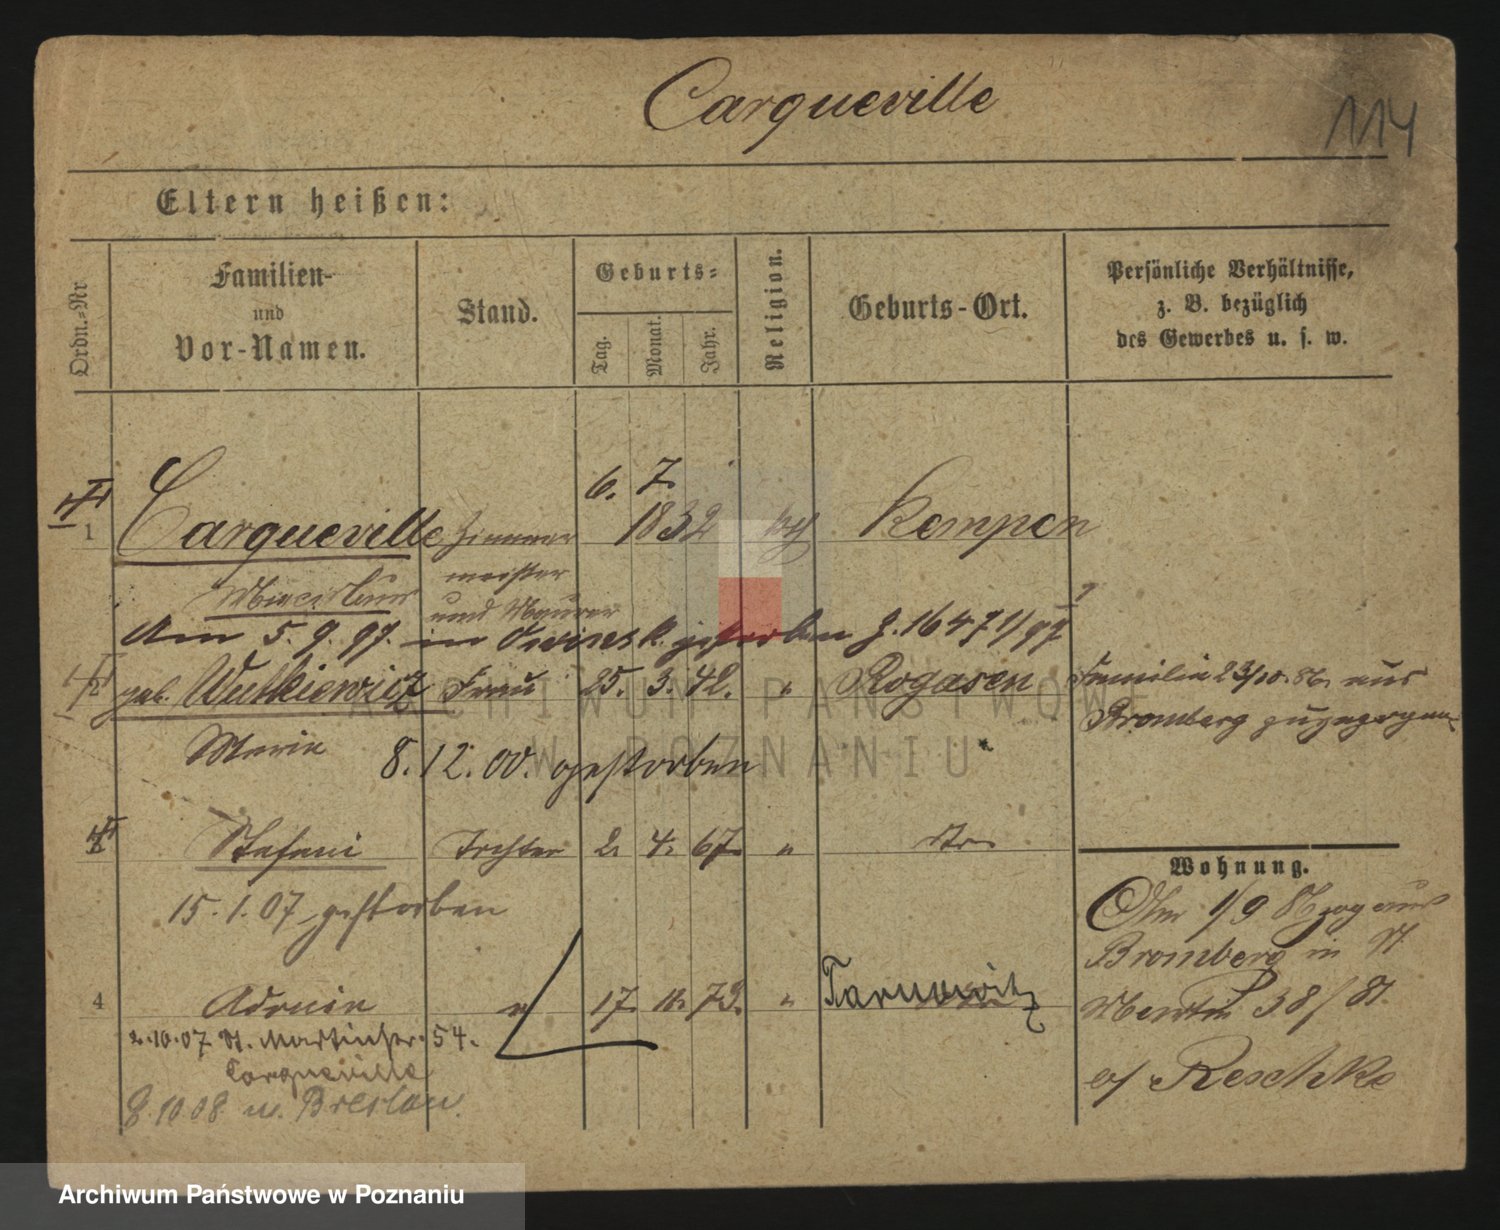 Carqueville
114
Eltern heißen:
Ordn.-Nr
Familien-
und
Vor-Namen.
Stand.
Geburts-
Tag.
Monat.
Jahr.
Religion.
Geburts-Ort.
Persönliche Verhältnisse,
z. B. bezüglich
des Gewerbes u. s. w.
6. 7.
1 Carqueville Zimmer 1832 kth Kempen
meister
und Maurer
Am 5.9.97. in gestorben J. 1647 1/97
2 geb. Wutkiewicz Frau 25. 3. 42. " Rogasen Familie 23/10. aus
Bromberg zugezogen
Marie 8.12.00. gestorben
Stefani Tochter 2. 4. 67. " dto
15.1.07 gestorben
4 " 17. 73. " Tarnowitz
2.10.07 St. Martinstr. 54.
Carqueville
8.10 08 n. Breslau.
Wohnung.
1/9 zog aus
Bromberg in St
Martin 38 / St.
b/ Reschke
ARCHIWUM PAŃSTWOWE
W POZNANIU
Archiwum Państwowe w Poznaniu